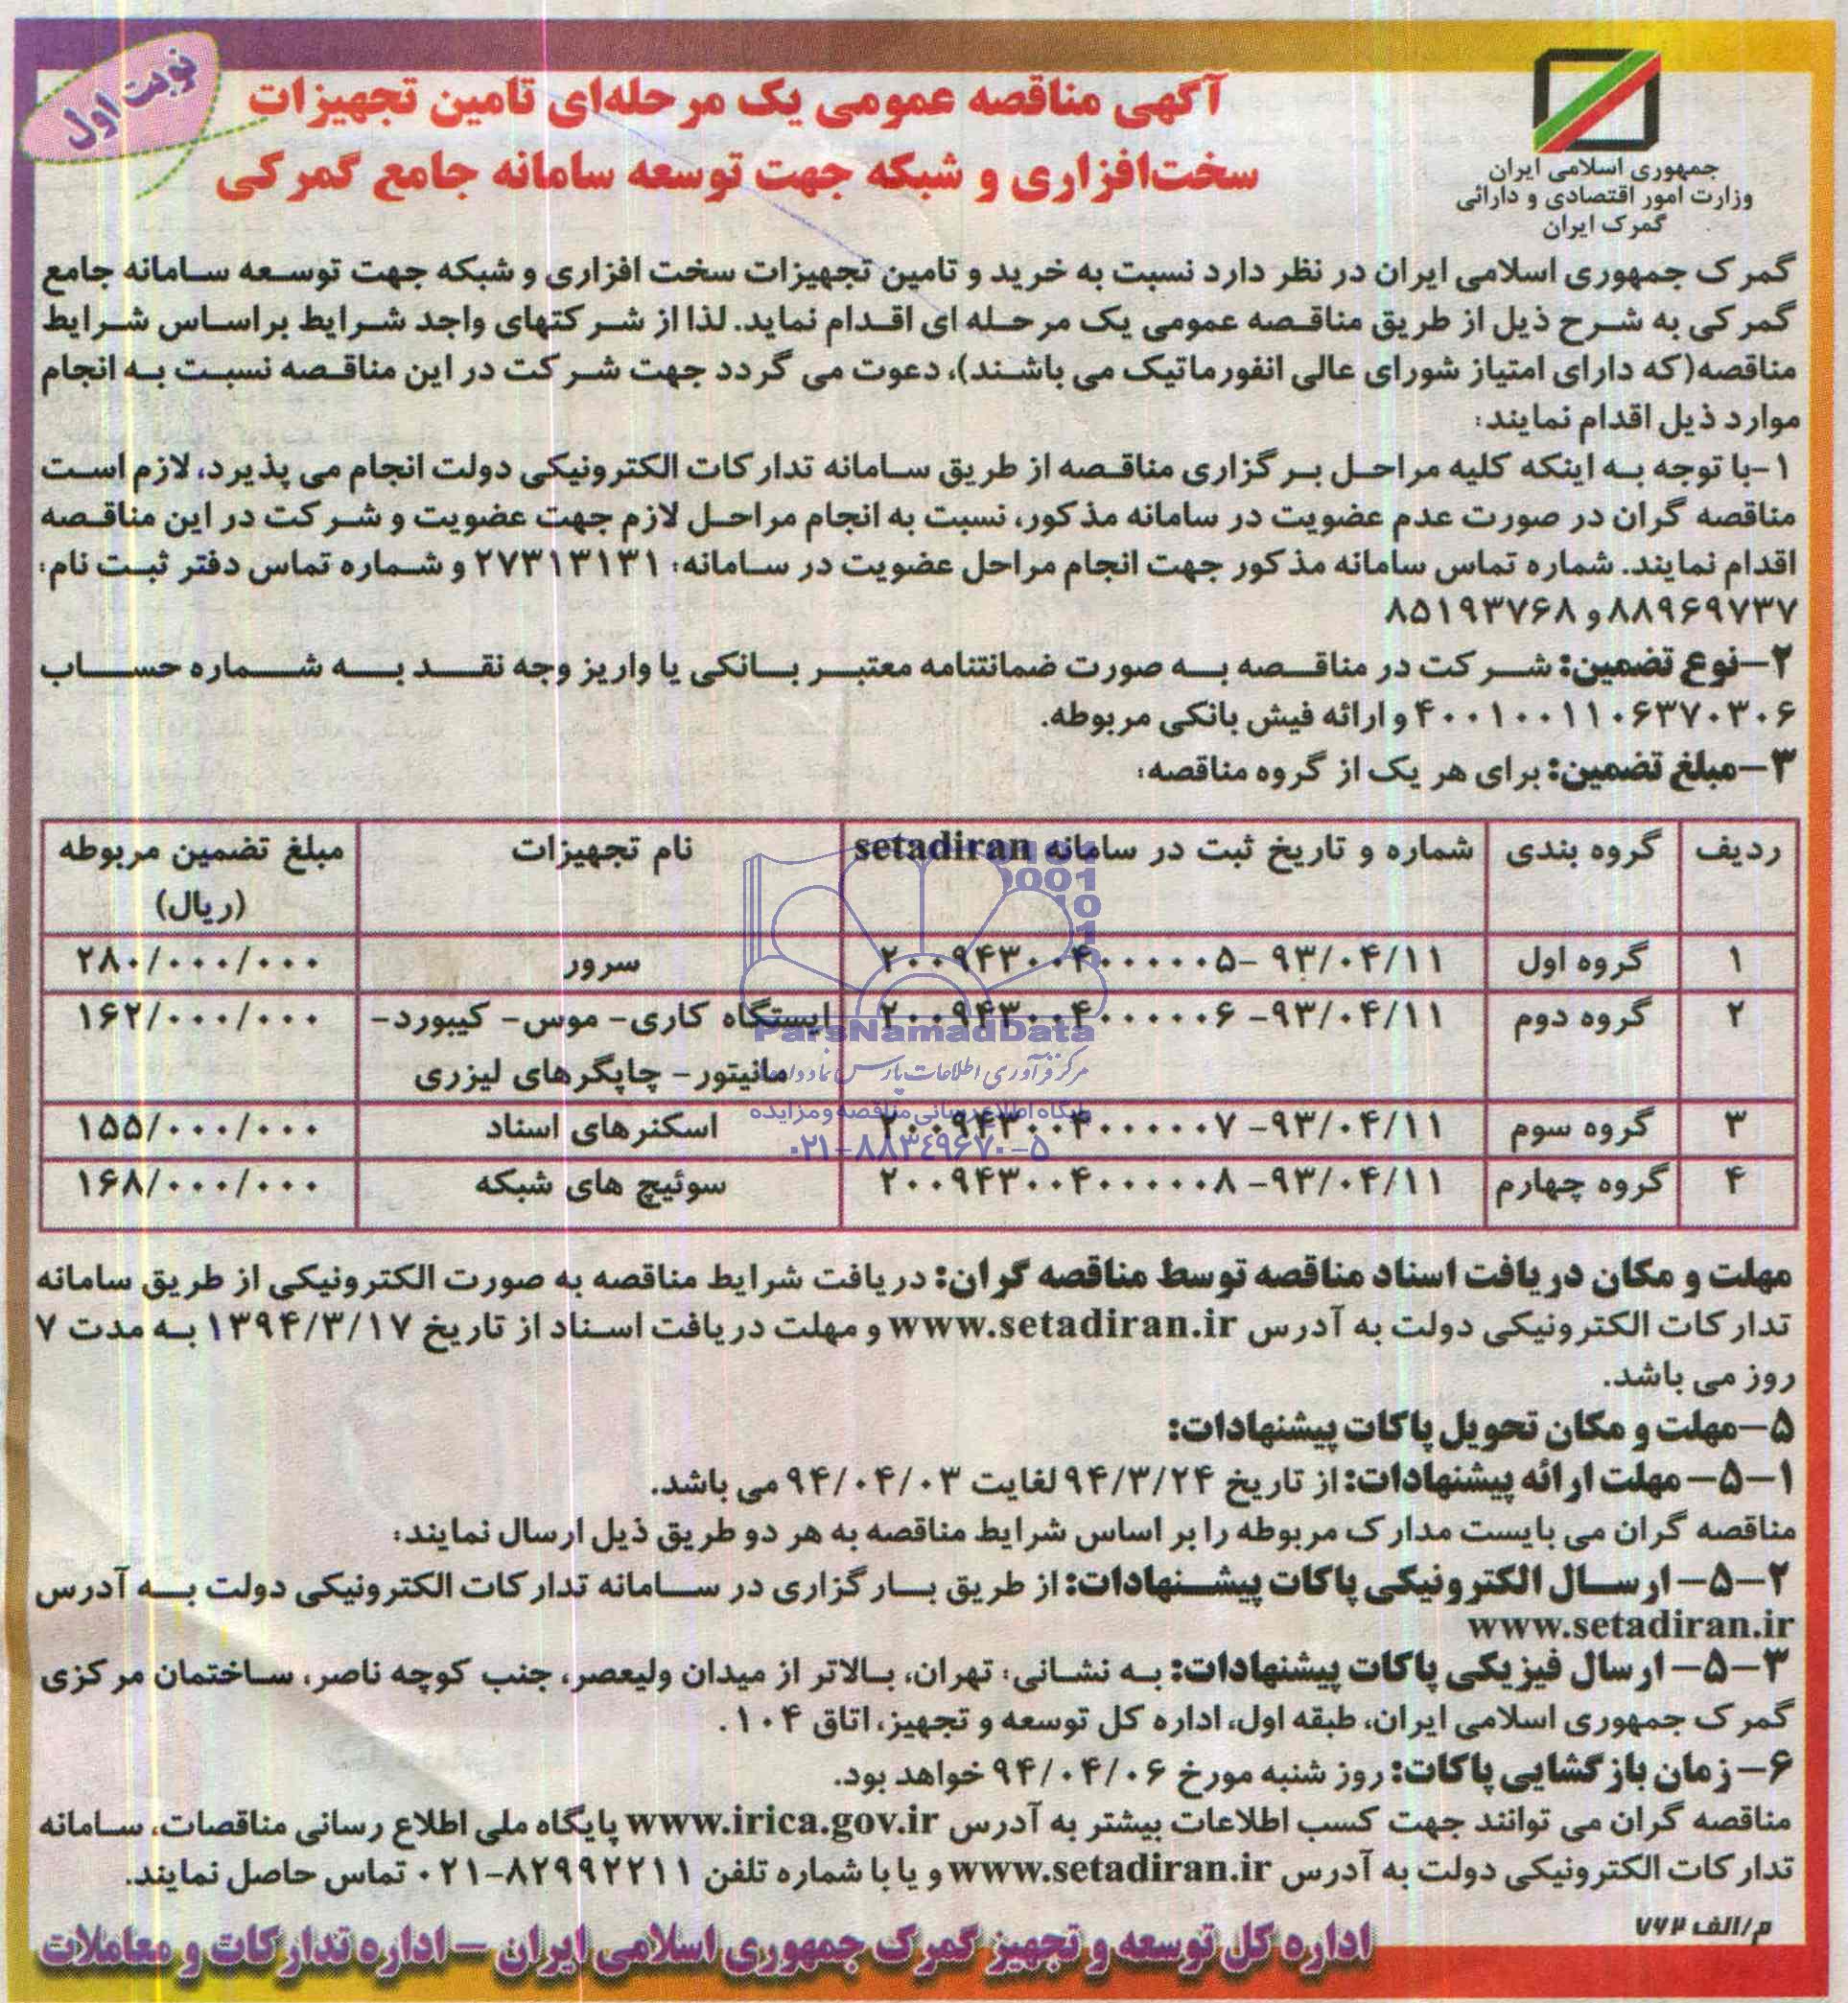 نوبت اول
آگهی مناقصه عمومی یک مرحله‌ای تامین تجهیزات
سخت‌افزاری و شبکه جهت توسعه سامانه جامع گمرکی
جمهوری اسلامی ایران
وزارت امور اقتصادی و دارائی
گمرک ایران
گمرک جمهوری اسلامی ایران در نظر دارد نسبت به خرید و تامین تجهیزات سخت افزاری و شبکه جهت توسعه سامانه جامع
گمرکی به شرح ذیل از طریق مناقصه عمومی یک مرحله ای اقدام نماید. لذا از شرکتهای واجد شرایط براساس شرایط
مناقصه(که دارای امتیاز شورای عالی انفورماتیک می باشند)، دعوت می گردد جهت شرکت در این مناقصه نسبت به انجام
موارد ذیل اقدام نمایند:
۱-با توجه به اینکه کلیه مراحل برگزاری مناقصه از طریق سامانه تدارکات الکترونیکی دولت انجام می پذیرد، لازم است
مناقصه گران در صورت عدم عضویت در سامانه مذکور، نسبت به انجام مراحل لازم جهت عضویت و شرکت در این مناقصه
اقدام نمایند. شماره تماس سامانه مذکور جهت انجام مراحل عضویت در سامانه: ۲۷۳۱۳۱۳۱ و شماره تماس دفتر ثبت نام:
۸۸۹۶۹۷۳۷ و ۸۵۱۹۳۷۶۸
۲-نوع تضمین: شرکت در مناقصه به صورت ضمانتنامه معتبر بانکی یا واریز وجه نقد به شماره حساب
۴۰۰۱۰۰۱۱۰۶۳۷۰۳۰۶ و ارائه فیش بانکی مربوطه.
۳-مبلغ تضمین: برای هر یک از گروه مناقصه:
ردیف گروه بندی شماره و تاریخ ثبت در سامانه setadiran نام تجهیزات مبلغ تضمین مربوطه
(ریال)
۱ گروه اول ۹۳/۰۴/۱۱ -۲۰۰۹۴۳۰۰۴۰۰۰۰۰۰۵ سرور ۲۸۰/۰۰۰/۰۰۰
۲ گروه دوم ۹۳/۰۴/۱۱ -۲۰۰۹۴۳۰۰۴۰۰۰۰۰۰۶ ایستگاه کاری- موس- کیبورد- ۱۶۲/۰۰۰/۰۰۰
مانیتور- چاپگرهای لیزری
۳ گروه سوم ۹۳/۰۴/۱۱ -۲۰۰۹۴۳۰۰۴۰۰۰۰۰۰۷ اسکنرهای اسناد ۱۵۵/۰۰۰/۰۰۰
۴ گروه چهارم ۹۳/۰۴/۱۱ -۲۰۰۹۴۳۰۰۴۰۰۰۰۰۰۸ سوئیچ های شبکه ۱۶۸/۰۰۰/۰۰۰
ParsNamadData
مرکز فرآوری اطلاعات پارس نماد داده
پایگاه اطلاع رسانی مناقصه و مزایده
۰۲۱-۸۸۳۴۹۶۷۰-۵
مهلت و مکان دریافت اسناد مناقصه توسط مناقصه گران: دریافت شرایط مناقصه به صورت الکترونیکی از طریق سامانه
تدارکات الکترونیکی دولت به آدرس www.setadiran.ir و مهلت دریافت اسناد از تاریخ ۱۳۹۴/۳/۱۷ به مدت ۷
روز می باشد.
۵-مهلت و مکان تحویل پاکات پیشنهادات:
۱-۵- مهلت ارائه پیشنهادات: از تاریخ ۹۴/۳/۲۴ لغایت ۹۴/۰۴/۰۳ می باشد.
مناقصه گران می بایست مدارک مربوطه را بر اساس شرایط مناقصه به هر دو طریق ذیل ارسال نمایند:
۲-۵- ارسال الکترونیکی پاکات پیشنهادات: از طریق بارگزاری در سامانه تدارکات الکترونیکی دولت به آدرس
www.setadiran.ir
۳-۵- ارسال فیزیکی پاکات پیشنهادات: به نشانی: تهران، بالاتر از میدان ولیعصر، جنب کوچه ناصر، ساختمان مرکزی
گمرک جمهوری اسلامی ایران، طبقه اول، اداره کل توسعه و تجهیز، اتاق ۱۰۴.
۶- زمان بازگشایی پاکات: روز شنبه مورخ ۹۴/۰۴/۰۶ خواهد بود.
مناقصه گران می توانند جهت کسب اطلاعات بیشتر به آدرس www.irica.gov.ir پایگاه ملی اطلاع رسانی مناقصات، سامانه
تدارکات الکترونیکی دولت به آدرس www.setadiran.ir و یا با شماره تلفن ۸۲۹۹۲۲۱۱-۰۲۱ تماس حاصل نمایند.
م/الف ۷۶۲
اداره کل توسعه و تجهیز گمرک جمهوری اسلامی ایران - اداره تدارکات و معاملات